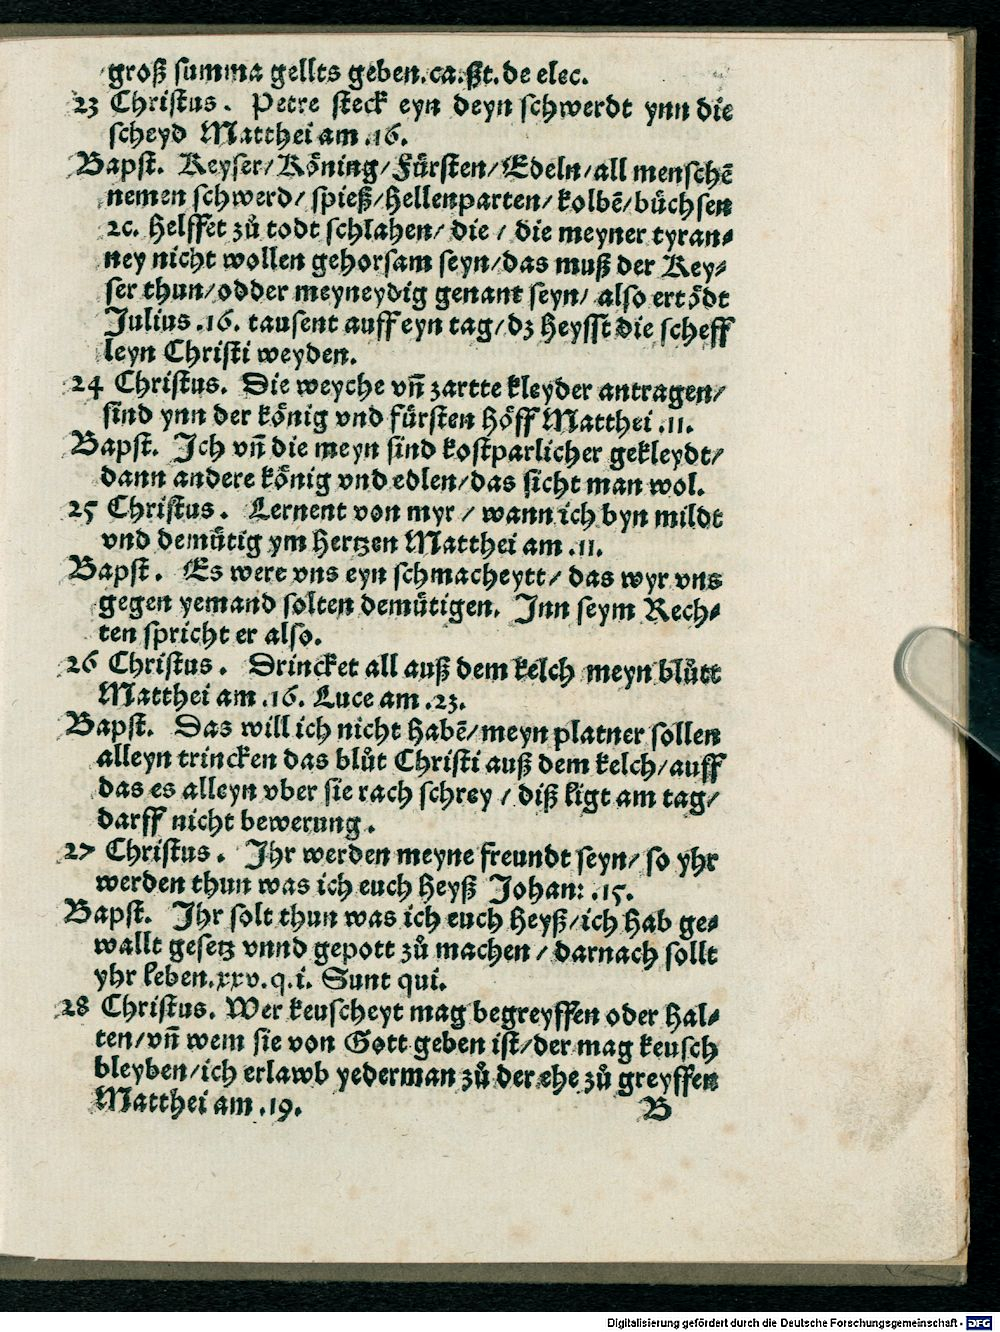 groß summa gellts geben. ca. ßt. de elec.
23 Christus. Petre steck eyn deyn schwerdt ynn die
scheyd Matthei am .16.
Bapst. Keyser/ Köning/ Fürsten/ Edeln/ all menschē
nemen schwerd/ spieß/ Hellenparten/ kolbē/ büchsen
ꝛc. Helffet zů todt schlahen/ die / die meyner tyran⸗
ney nicht wollen gehorsam seyn/ das muß der Key⸗
ser thun/ odder meyneydig genant seyn/ also ertödt
Julius .16. tausent auff eyn tag/ dz heysst die scheff
leyn Christi weyden.
24 Christus. Die weyche vn̄ zartte kleyder antragen/
sind ynn der könig vnd fürsten höff Matthei .11.
Bapst. Ich vn̄ die meyn sind kostparlicher gekleydt/
dann andere könig vnd edlen/ das sicht man wol.
25 Christus. Lernent von myr / wann ich byn mildt
vnd demütig ym hertzen Matthei am .11.
Bapst. Es were vns eyn schmacheytt/ das wyr vns
gegen yemand solten demütigen. Inn seym Rech⸗
ten spricht er also.
26 Christus. Drincket all auß dem kelch meyn blůtt
Matthei am .16. Luce am .23.
Bapst. Das will ich nicht habē/ meyn platner sollen
alleyn trincken das blůt Christi auß dem kelch/ auff
das es alleyn vber sie rach schrey / diß ligt am tag/
darff nicht bewerung.
27 Christus. Ihr werden meyne freundt seyn/ so yhr
werden thun was ich euch heyß Johan: .15.
Bapst. Ihr solt thun was ich euch heyß/ ich hab ge⸗
wallt gesetz vnnd gepott zů machen / darnach sollt
yhr leben. xxv. q. i. Sunt qui.
28 Christus. Wer keuscheyt mag begreyffen oder hal⸗
ten/ vn̄ wem sie von Gott geben ist/ der mag keusch
bleyben/ ich erlawb yederman zů der ehe zů greyffen
Matthei am .19.
B
Digitalisierung gefördert durch die Deutsche Forschungsgemeinschaft - DFG